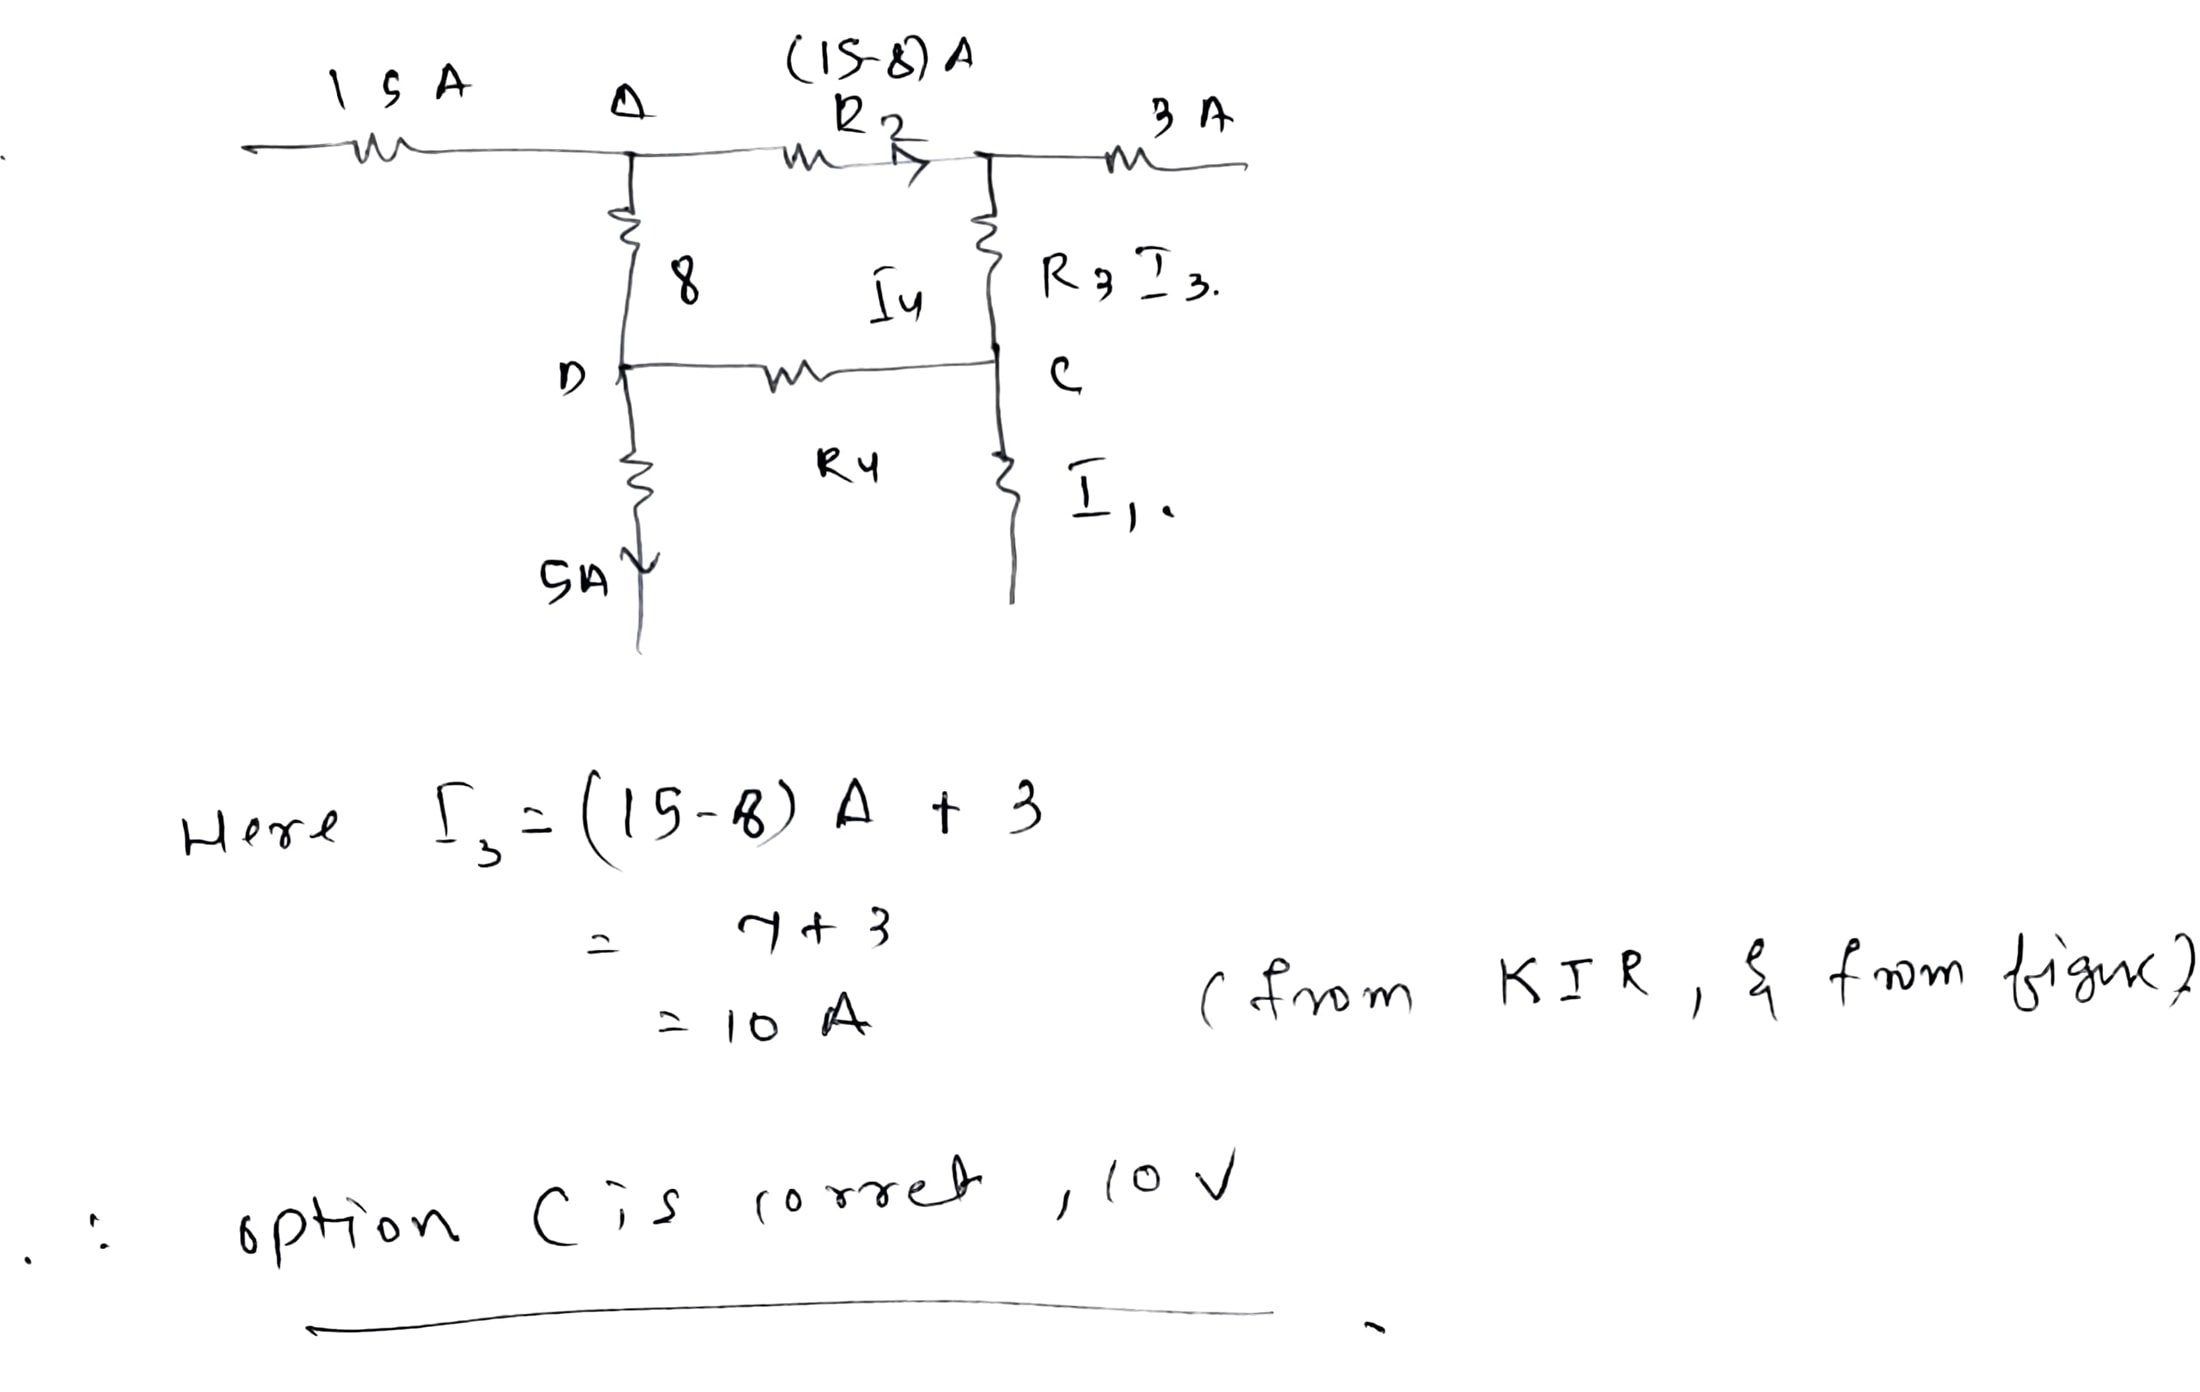 (15-8) A
15 A
A
R2
3 A
8
I4
R3 I3.
D
C
R4
I1.
5A
Here I3 = (15-8) A + 3
= 7 + 3
= 10 A (from KIR, & from figure)
∴ option C is corret, 10 V